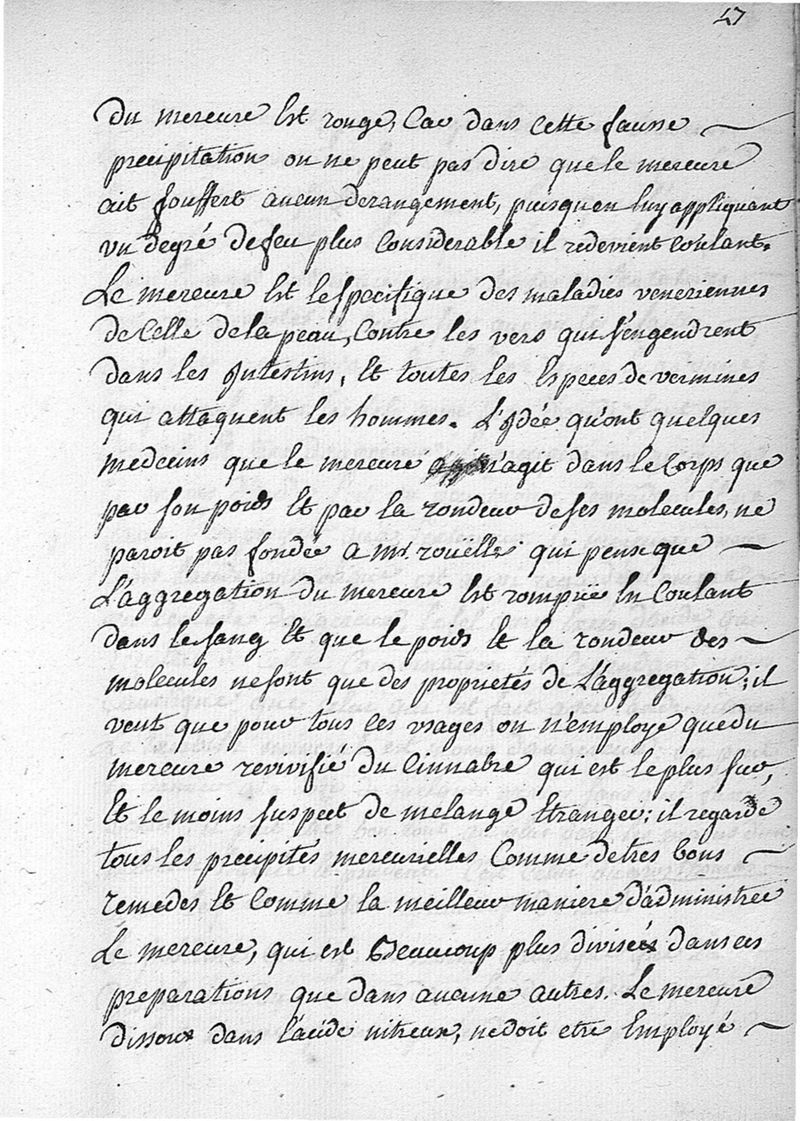 47
du mercure Est rouge, Car dans Cette fausse
precipitation on ne peut pas dire que le mercure
ait souffert aucun derangement, puisqu'en luy appliquant
vn degré de feu plus Considerable il redevient coulant.
Le mercure Est le specifique des maladies veneriennes
de Celle de la peau, Contre les vers qui s'engendrent
dans les Intestins, Et toutes les Especes de vermines
qui attaquent les hommes. L'Idée qu'ont quelques
medecins que le mercure n'agit dans le Corps que
par son poids Et par la rondeur de ses molecules, ne
paroit pas fondée a mr. rouelle qui pense que
L'aggregation du mercure Est rompuë En Coulant
dans le sang Et que le poids Et la rondeur des
molecules ne sont que des proprietés de L'aggregation; il
veut que pour tous les vsages on n'employe que du
mercure revivifié du Cinnabre qui est le plus sur,
Et le moins suspect de melange Etranger; il regarde
tous les precipités mercurielles Comme de tres bons
remedes Et Comme la meilleur maniere d'administrer
Le mercure, qui est Beaucoup plus divisée dans ces
preparations que dans aucune autres. Le mercure
dissoux dans l'acide nitreux, ne doit etre Employé